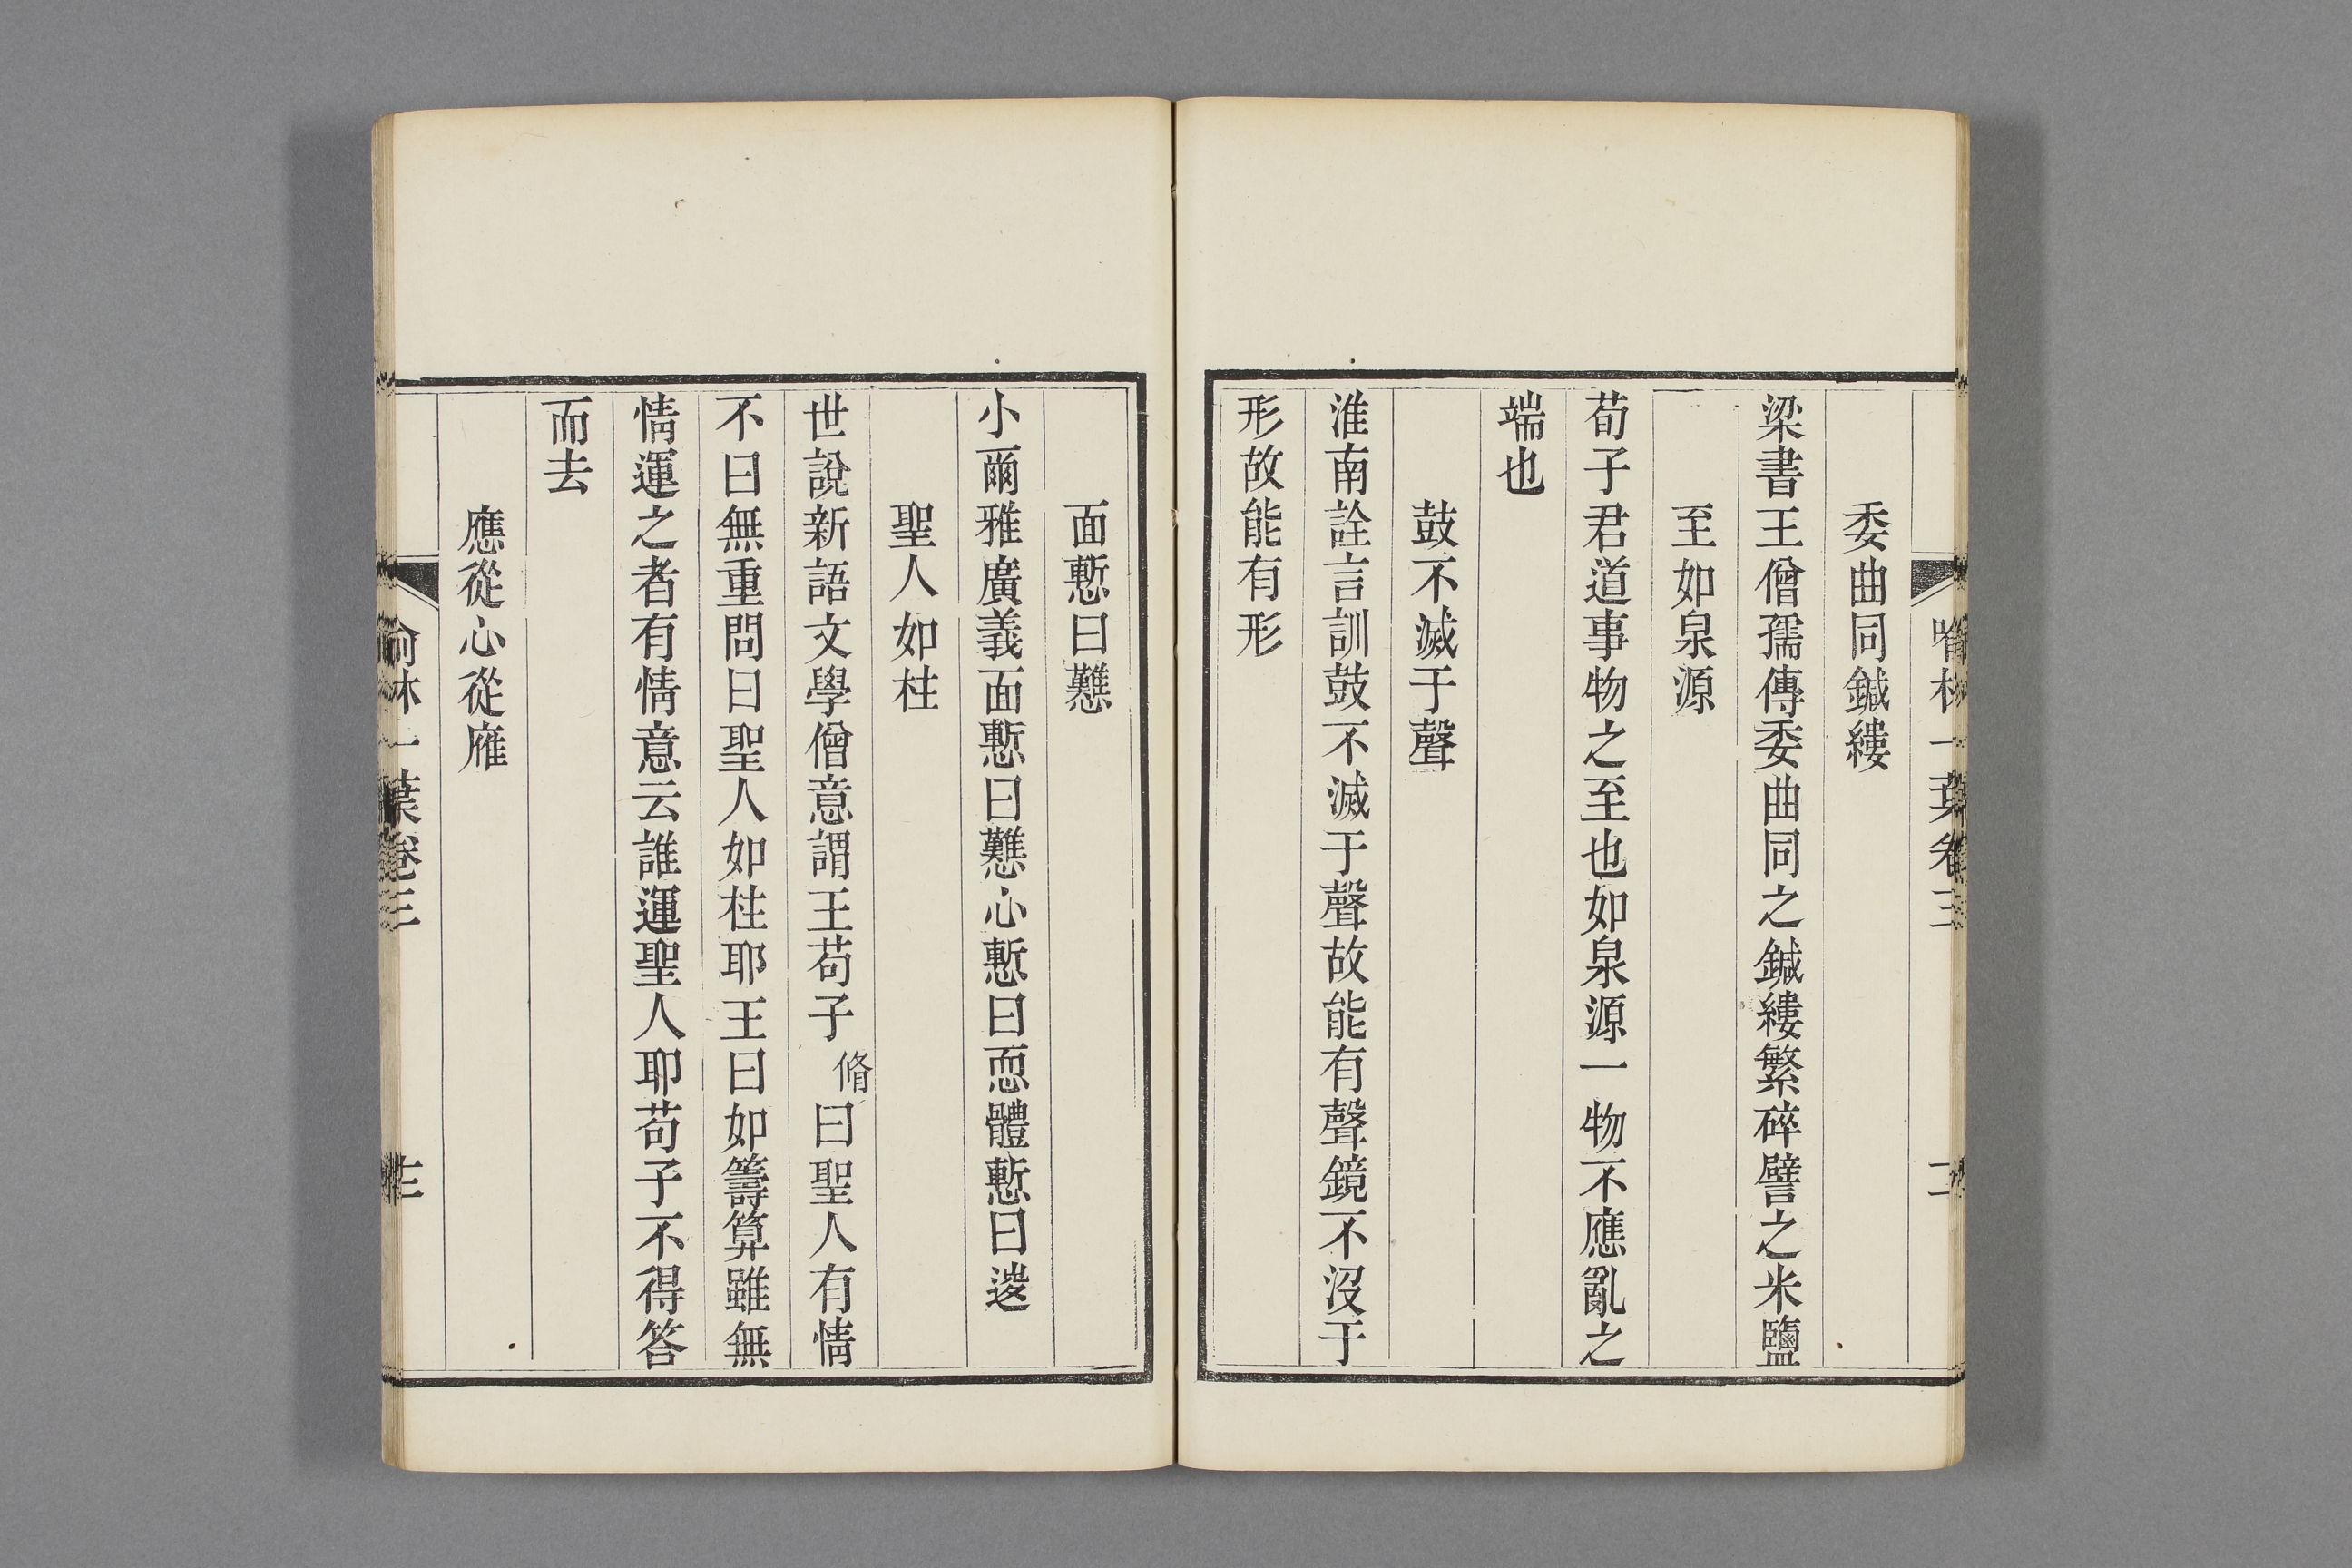 委曲同鍼縷
梁書王僧孺傳委曲同之鍼縷繁碎譬之米鹽
至如泉源
荀子君道事物之至也如泉源一物不應亂之
端也
鼓不滅于聲
淮南詮言訓鼓不滅于聲故能有聲鏡不沒于
形故能有形
面慙曰戁
小爾雅廣義面慙曰戁心慙曰恧體慙曰逡
聖人如柱
世說新語文學僧意謂王苟子脩曰聖人有情
不曰無重問曰聖人如柱耶王曰如籌算雖無
情運之者有情意云誰運聖人耶苟子不得答
而去
應從心從䧹
喻林一葉卷三